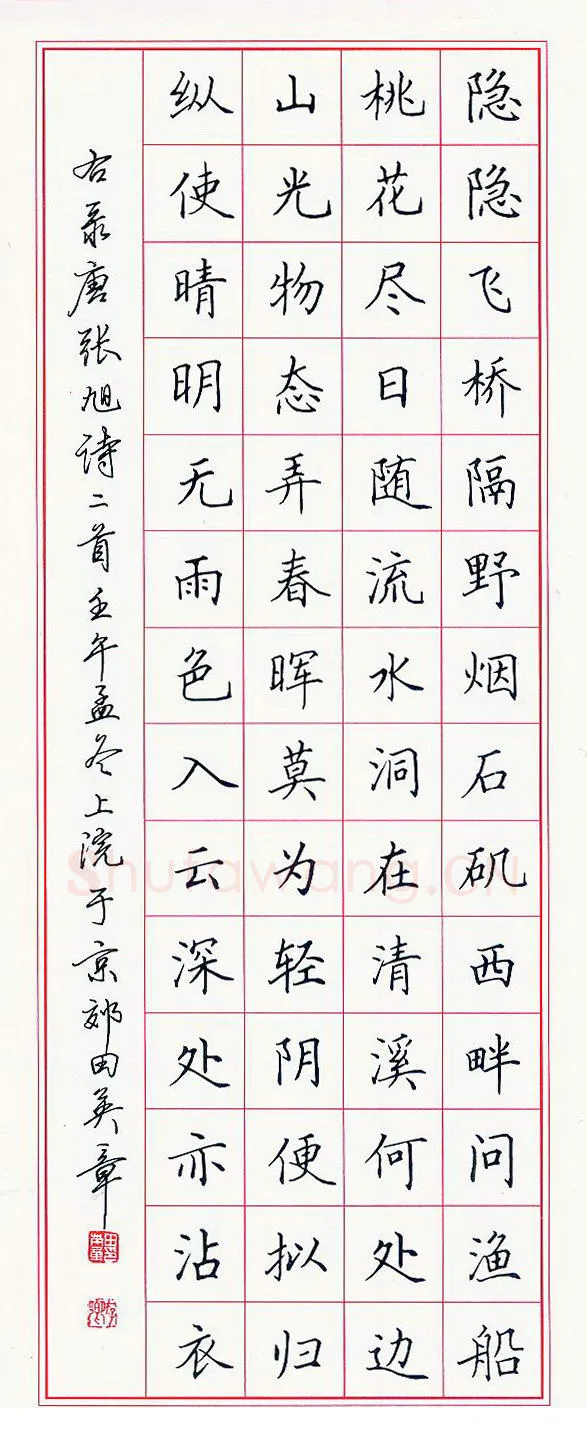 隐隐飞桥隔野烟石矶西畔问渔船
桃花尽日随流水洞在清溪何处边
山光物态弄春晖莫为轻阴便拟归
纵使晴明无雨色入云深处亦沾衣
右录唐张旭诗二首壬午孟冬上浣于京郊田英章
田英章
Shufawang.CN